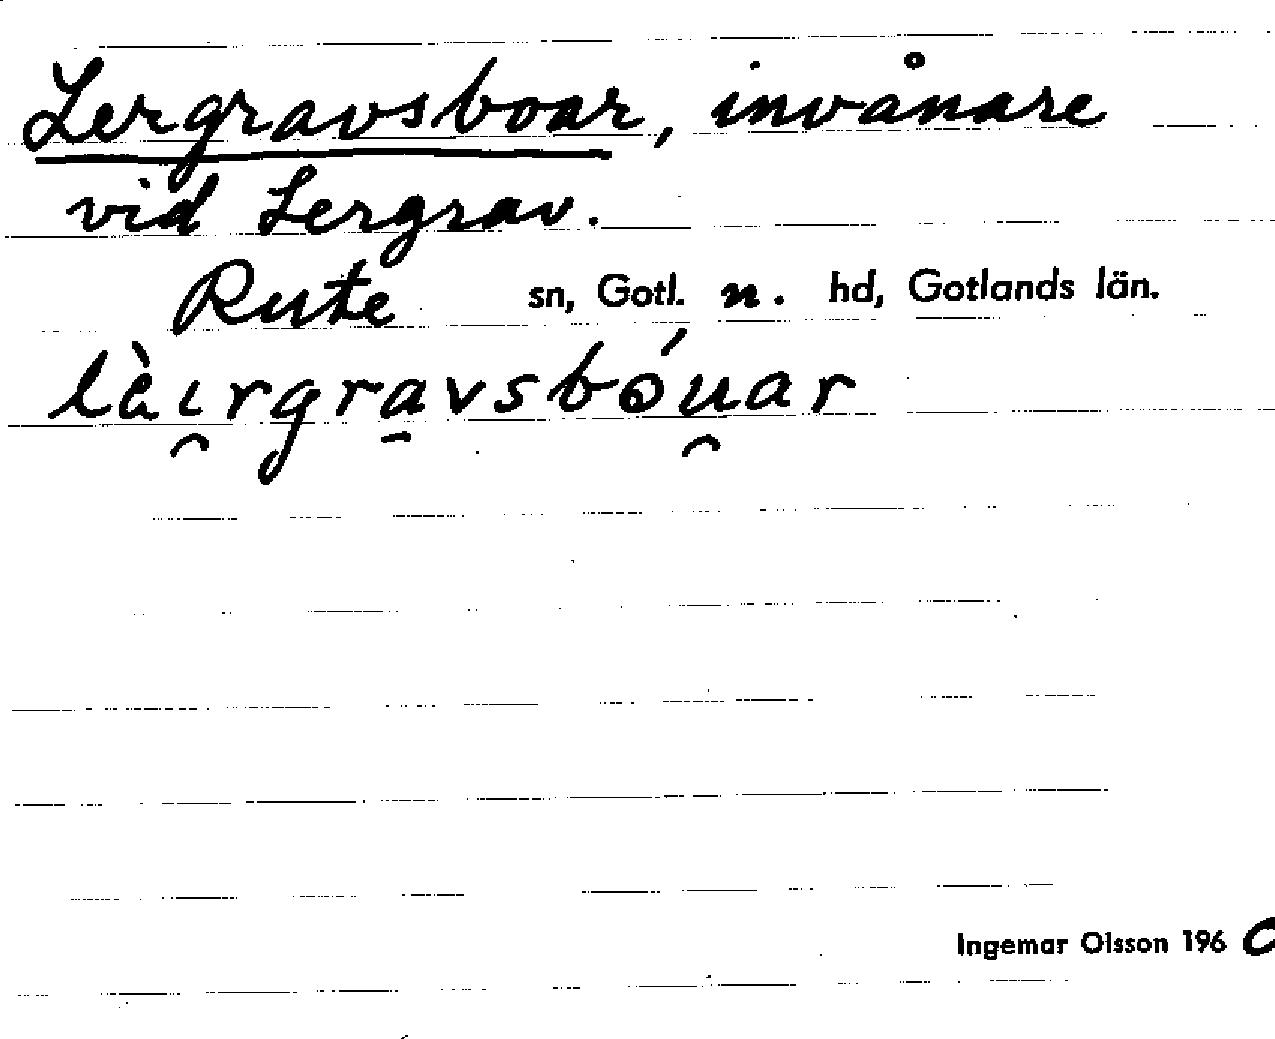 Lergravsboar, invånare
vid Lergrav.
Rute sn, Gotl. n. hd, Gotlands län.
lὰı̯rgra̱vsbóu̯ar
Ingemar Olsson 196